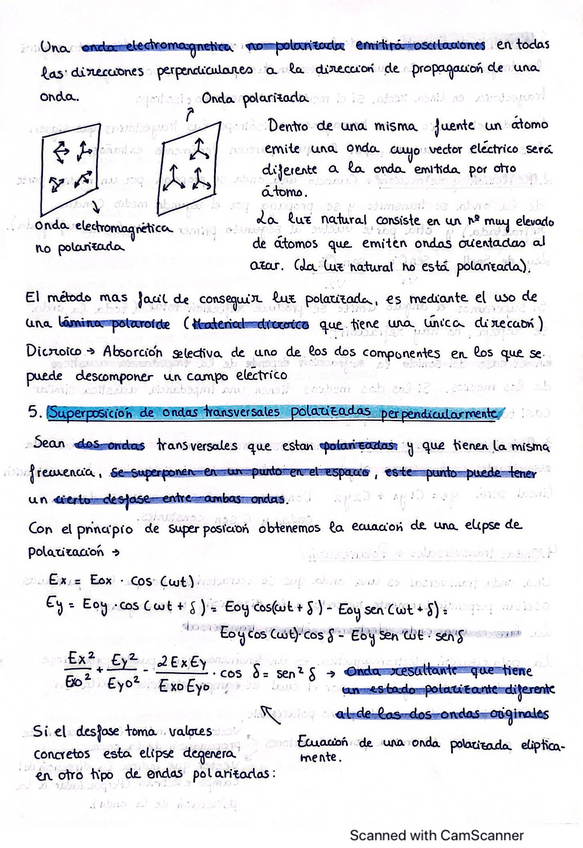 Una onda electromagnetica no polarizada emitirá oscilaciones en todas
las direcciones perpendiculares a la direccion de propagación de una
onda.
Onda polarizada
Dentro de una misma fuente un átomo
emite una onda cuyo vector eléctrico será
diferente a la onda emitida por otro
átomo.
Onda electromagnética
no polarizada
La luz natural consiste en un nº muy elevado
de átomos que emiten ondas orientadas al
azar. (La luz natural no está polarizada).
El método mas facil de conseguir luz polarizada, es mediante el uso de
una lámina polaroide (Material dicroico que tiene una única dirección)
Dicroico → Absorción selectiva de uno de los dos componentes en los que se
puede descomponer un campo electrico
5. Superposición de ondas transversales polarizadas perpendicularmente
Sean dos ondas transversales que estan polarizadas y que tienen la misma
frecuencia, se superponen en un punto en el espacio, este punto puede tener
un cierto desfase entre ambas ondas.
Con el principio de superposición obtenemos la ecuación de una elipse de
polarización →
Ex = Eox · cos (wt)
Ey = Eoy · cos (wt + δ) = Eoy cos(wt + δ) - Eoy sen (wt + δ) =
Eoy cos (wt) cos δ - Eoy sen wt · sen δ
Ex²/Exo² + Ey²/Eyo² - 2ExEy/ExoEyo · cos δ = sen² δ → onda resultante que tiene
un estado polarizante diferente
al de las dos ondas originales
Si el desfase toma valores
concretos esta elipse degenera
en otro tipo de ondas polarizadas:
Ecuación de una onda polarizada eliptica-
mente.
Scanned with CamScanner